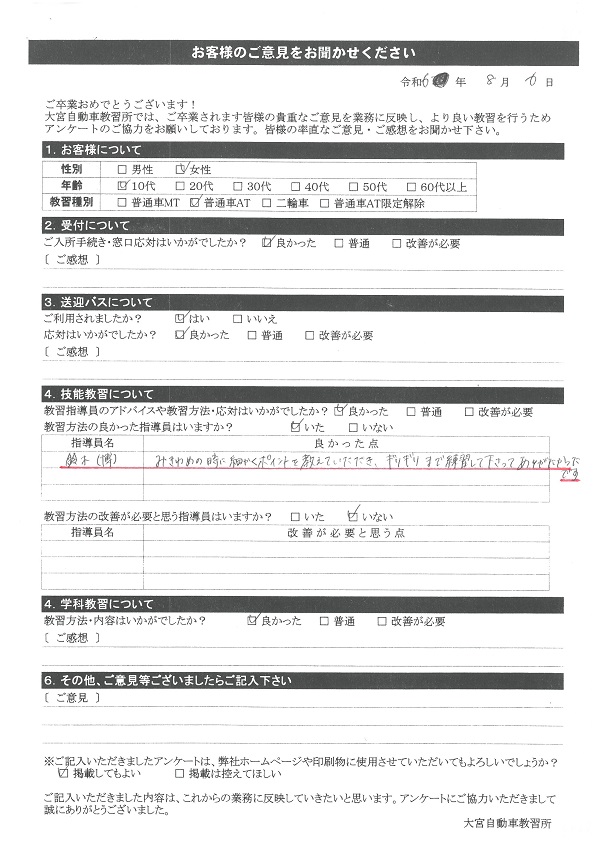 お客様のご意見をお聞かせください
令和6 年 8 月 6 日
ご卒業おめでとうございます！
大宮自動車教習所では、ご卒業されます皆様の貴重なご意見を業務に反映し、より良い教習を行うため
アンケートのご協力をお願いしております。皆様の率直なご意見・ご感想をお聞かせ下さい。
1. お客様について
性別 □ 男性 ☑ 女性
年齢 ☑ 10代 □ 20代 □ 30代 □ 40代 □ 50代 □ 60代以上
教習種別 □ 普通車MT ☑ 普通車AT □ 二輪車 □ 普通車AT限定解除
2. 受付について
ご入所手続き・窓口応対はいかがでしたか？ ☑ 良かった □ 普通 □ 改善が必要
〔 ご感想 〕
3. 送迎バスについて
ご利用されましたか？ ☑ はい □ いいえ
応対はいかがでしたか？ ☑ 良かった □ 普通 □ 改善が必要
〔 ご感想 〕
4. 技能教習について
教習指導員のアドバイスや教習方法・応対はいかがでしたか？ ☑ 良かった □ 普通 □ 改善が必要
教習方法の良かった指導員はいますか？ ☑ いた □ いない
指導員名 良かった点
鈴木(博) みきわめの時に細かくポイントを教えていただき、ギリギリまで練習して下さってありがたかった
です
教習方法の改善が必要と思う指導員はいますか？ □ いた ☑ いない
指導員名 改善が必要と思う点
4. 学科教習について
教習方法・内容はいかがでしたか？ ☑ 良かった □ 普通 □ 改善が必要
〔 ご感想 〕
6. その他、ご意見等ございましたらご記入下さい
〔 ご意見 〕
※ご記入いただきましたアンケートは、弊社ホームページや印刷物に使用させていただいてもよろしいでしょうか？
☑ 掲載してもよい □ 掲載は控えてほしい
ご記入いただきました内容は、これからの業務に反映していきたいと思います。アンケートにご協力いただきまして
誠にありがとうございました。
大宮自動車教習所